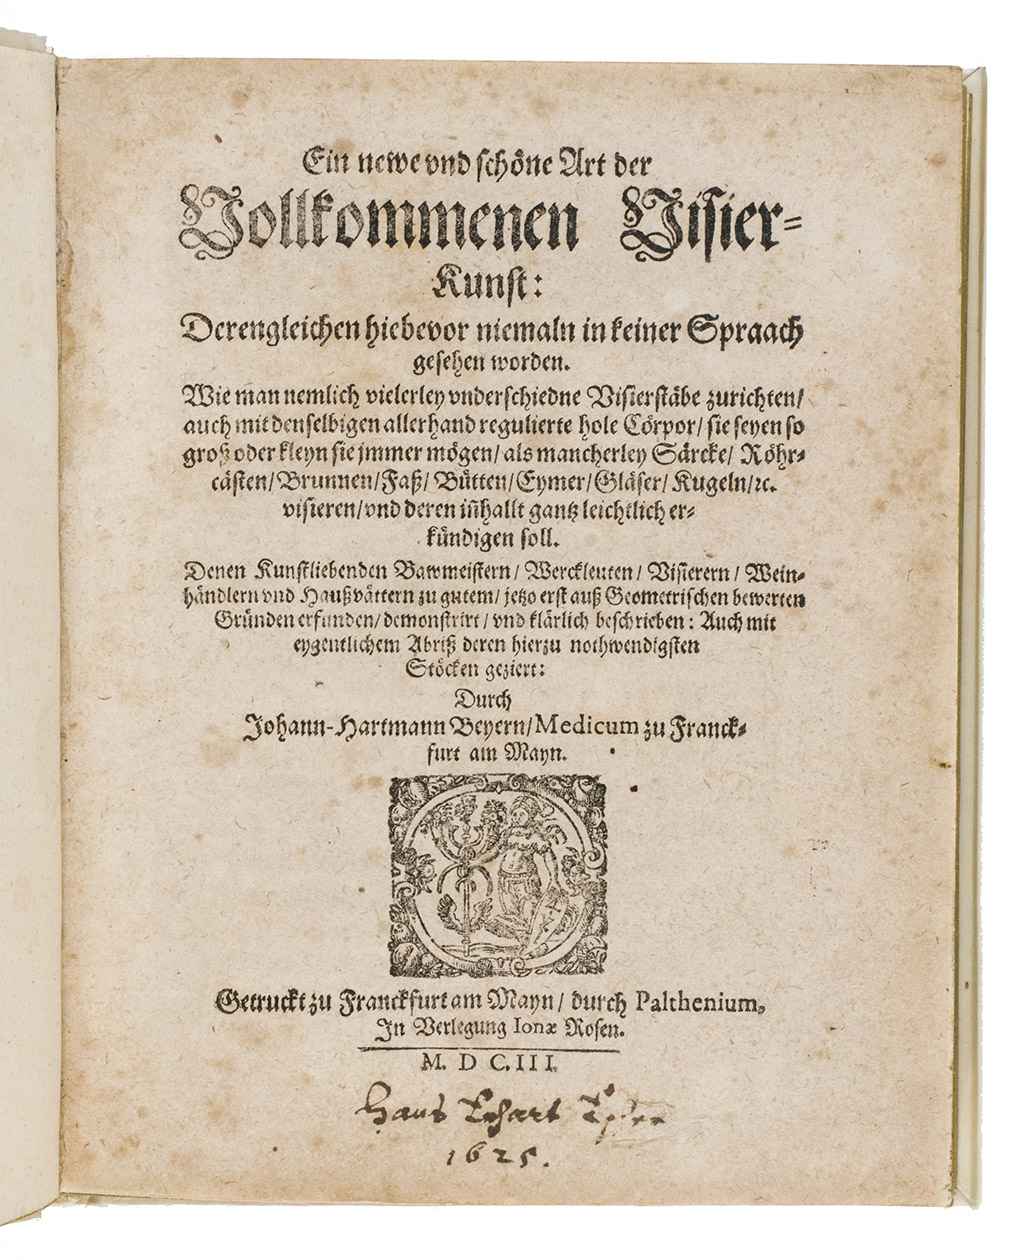 Ein newe vnd schöne Art der
Vollkommenen Visier-
Kunst:
Derengleichen hiebevor niemaln in keiner Spraach
gesehen worden.
Wie man nemlich vielerley vnderschiedne Visierstäbe zurichten/
auch mit denselbigen allerhand regulierte hole Cörpor/ sie seyen so
groß oder kleyn sie jmmer mögen/ als mancherley Särcke/ Röhr-
cästen/ Brunnen/ Faß/ Bütten/ Eymer/ Gläser/ Kugeln/ ꝛc.
visieren/ vnd deren iñhallt gantz leichtlich er-
kündigen soll.
Denen Kunstliebenden Bawmeistern/ Werckleuten/ Visierern/ Wein-
händlern vnd Haußvättern zu gutem/ jetzo erst auß Geometrischen bewerten
Gründen erfunden/ demonstrirt/ vnd klärlich beschrieben: Auch mit
eygentlichem Abriß deren hierzu nothwendigsten
Stöcken geziert:
Durch
Johann-Hartmann Beyern/ Medicum zu Franck-
furt am Mayn.
Getruckt zu Franckfurt am Mayn/ durch Palthenium,
In Verlegung Ionæ Rosen.
M. D C. III.
Hans
1625.